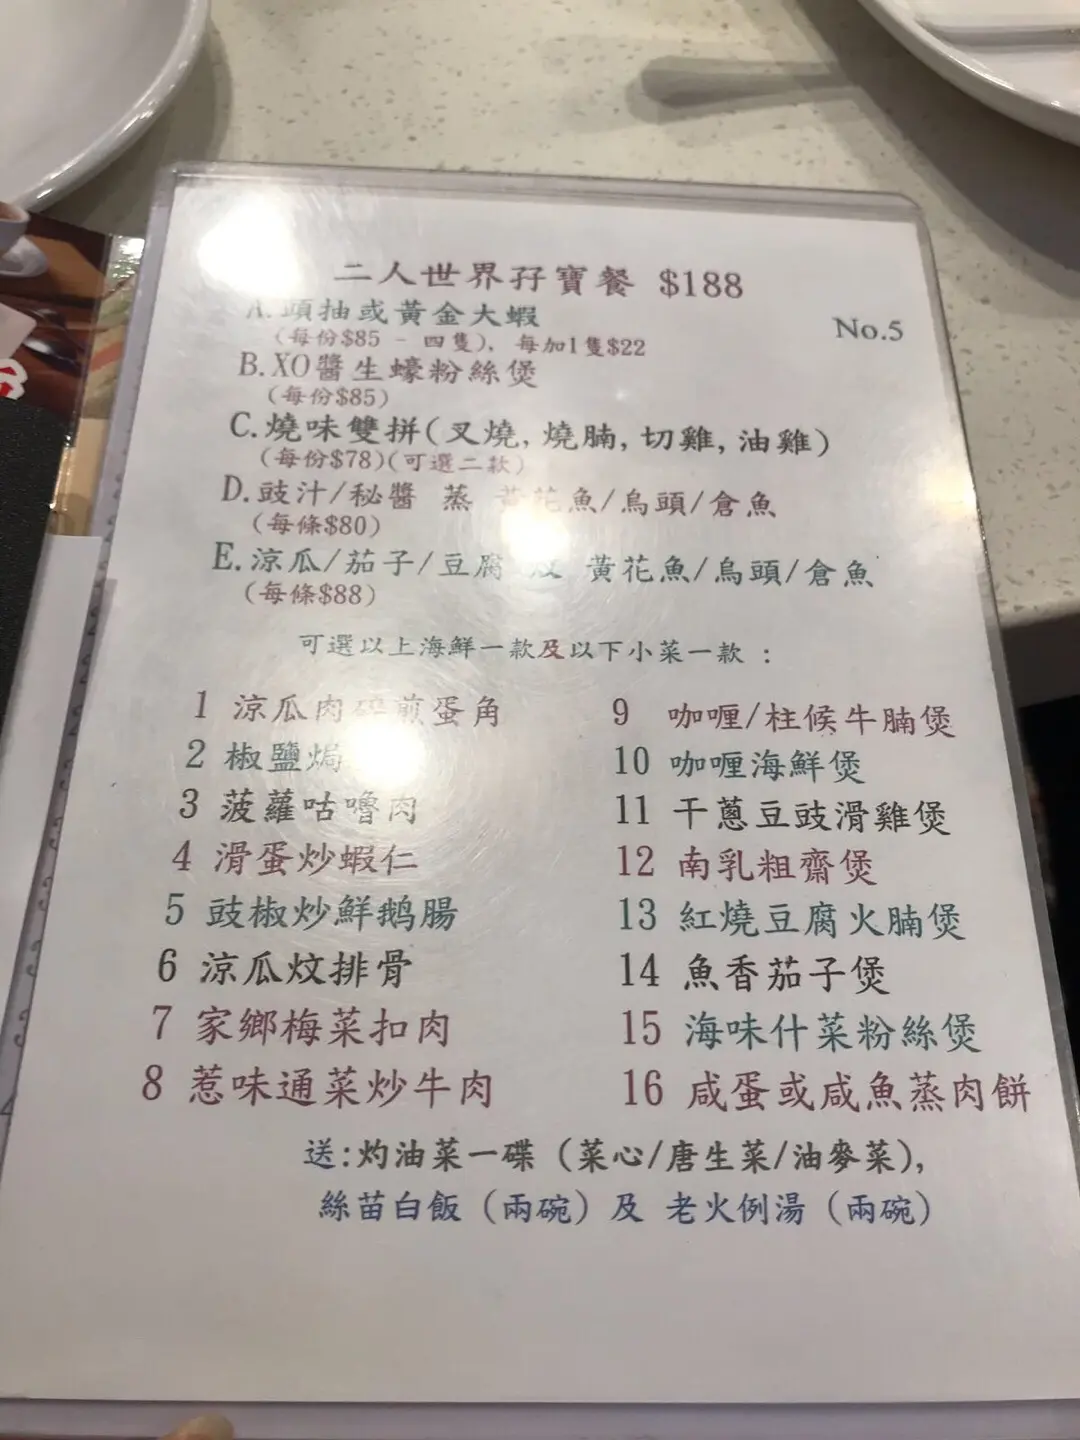 二人世界孖寶餐 $188
No.5
A.頭抽或黃金大蝦
(每份$85 - 四隻), 每加1隻$22
B.XO醬生蠔粉絲煲
(每份$85)
C.燒味雙拼(叉燒,燒腩,切雞,油雞)
(每份$78)(可選二款)
D.豉汁/秘醬 蒸 黃花魚/烏頭/倉魚
(每條$80)
E.涼瓜/茄子/豆腐 炆 黃花魚/烏頭/倉魚
(每條$88)
可選以上海鮮一款及以下小菜一款 :
1 涼瓜肉碎煎蛋角
2 椒鹽焗
3 菠蘿咕嚕肉
4 滑蛋炒蝦仁
5 豉椒炒鮮鹅腸
6 涼瓜炆排骨
7 家鄉梅菜扣肉
8 惹味通菜炒牛肉
9 咖喱/柱候牛腩煲
10 咖喱海鮮煲
11 干蔥豆豉滑雞煲
12 南乳粗齋煲
13 紅燒豆腐火腩煲
14 魚香茄子煲
15 海味什菜粉絲煲
16 咸蛋或咸魚蒸肉餅
送:灼油菜一碟 (菜心/唐生菜/油麥菜),
絲苗白飯 (兩碗) 及 老火例湯 (兩碗)